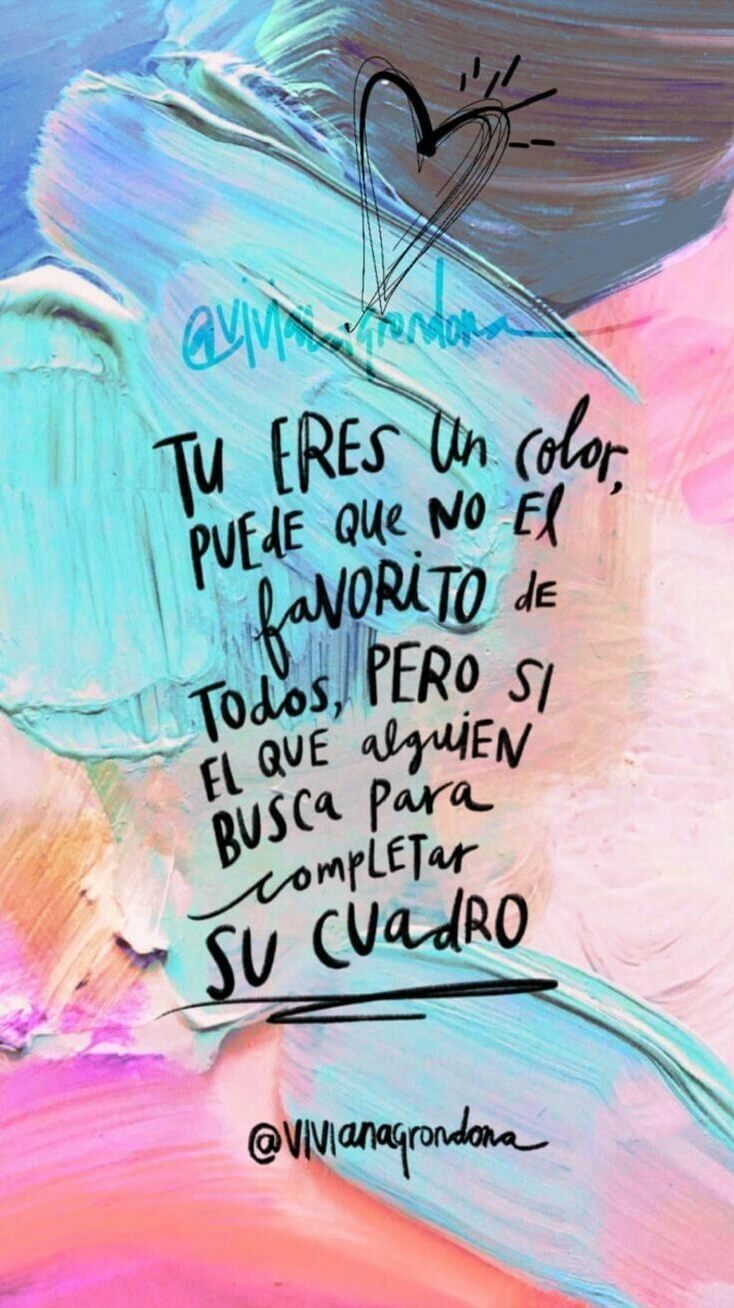 @vivianagrondona
TU ERES un color,
PUEdE QUe NO El
faVORiTO dE
TOdos, PERO SI
EL QUE alguiEN
BUSCa para
complETar
SU CUadRO
@VIVIanagrondona